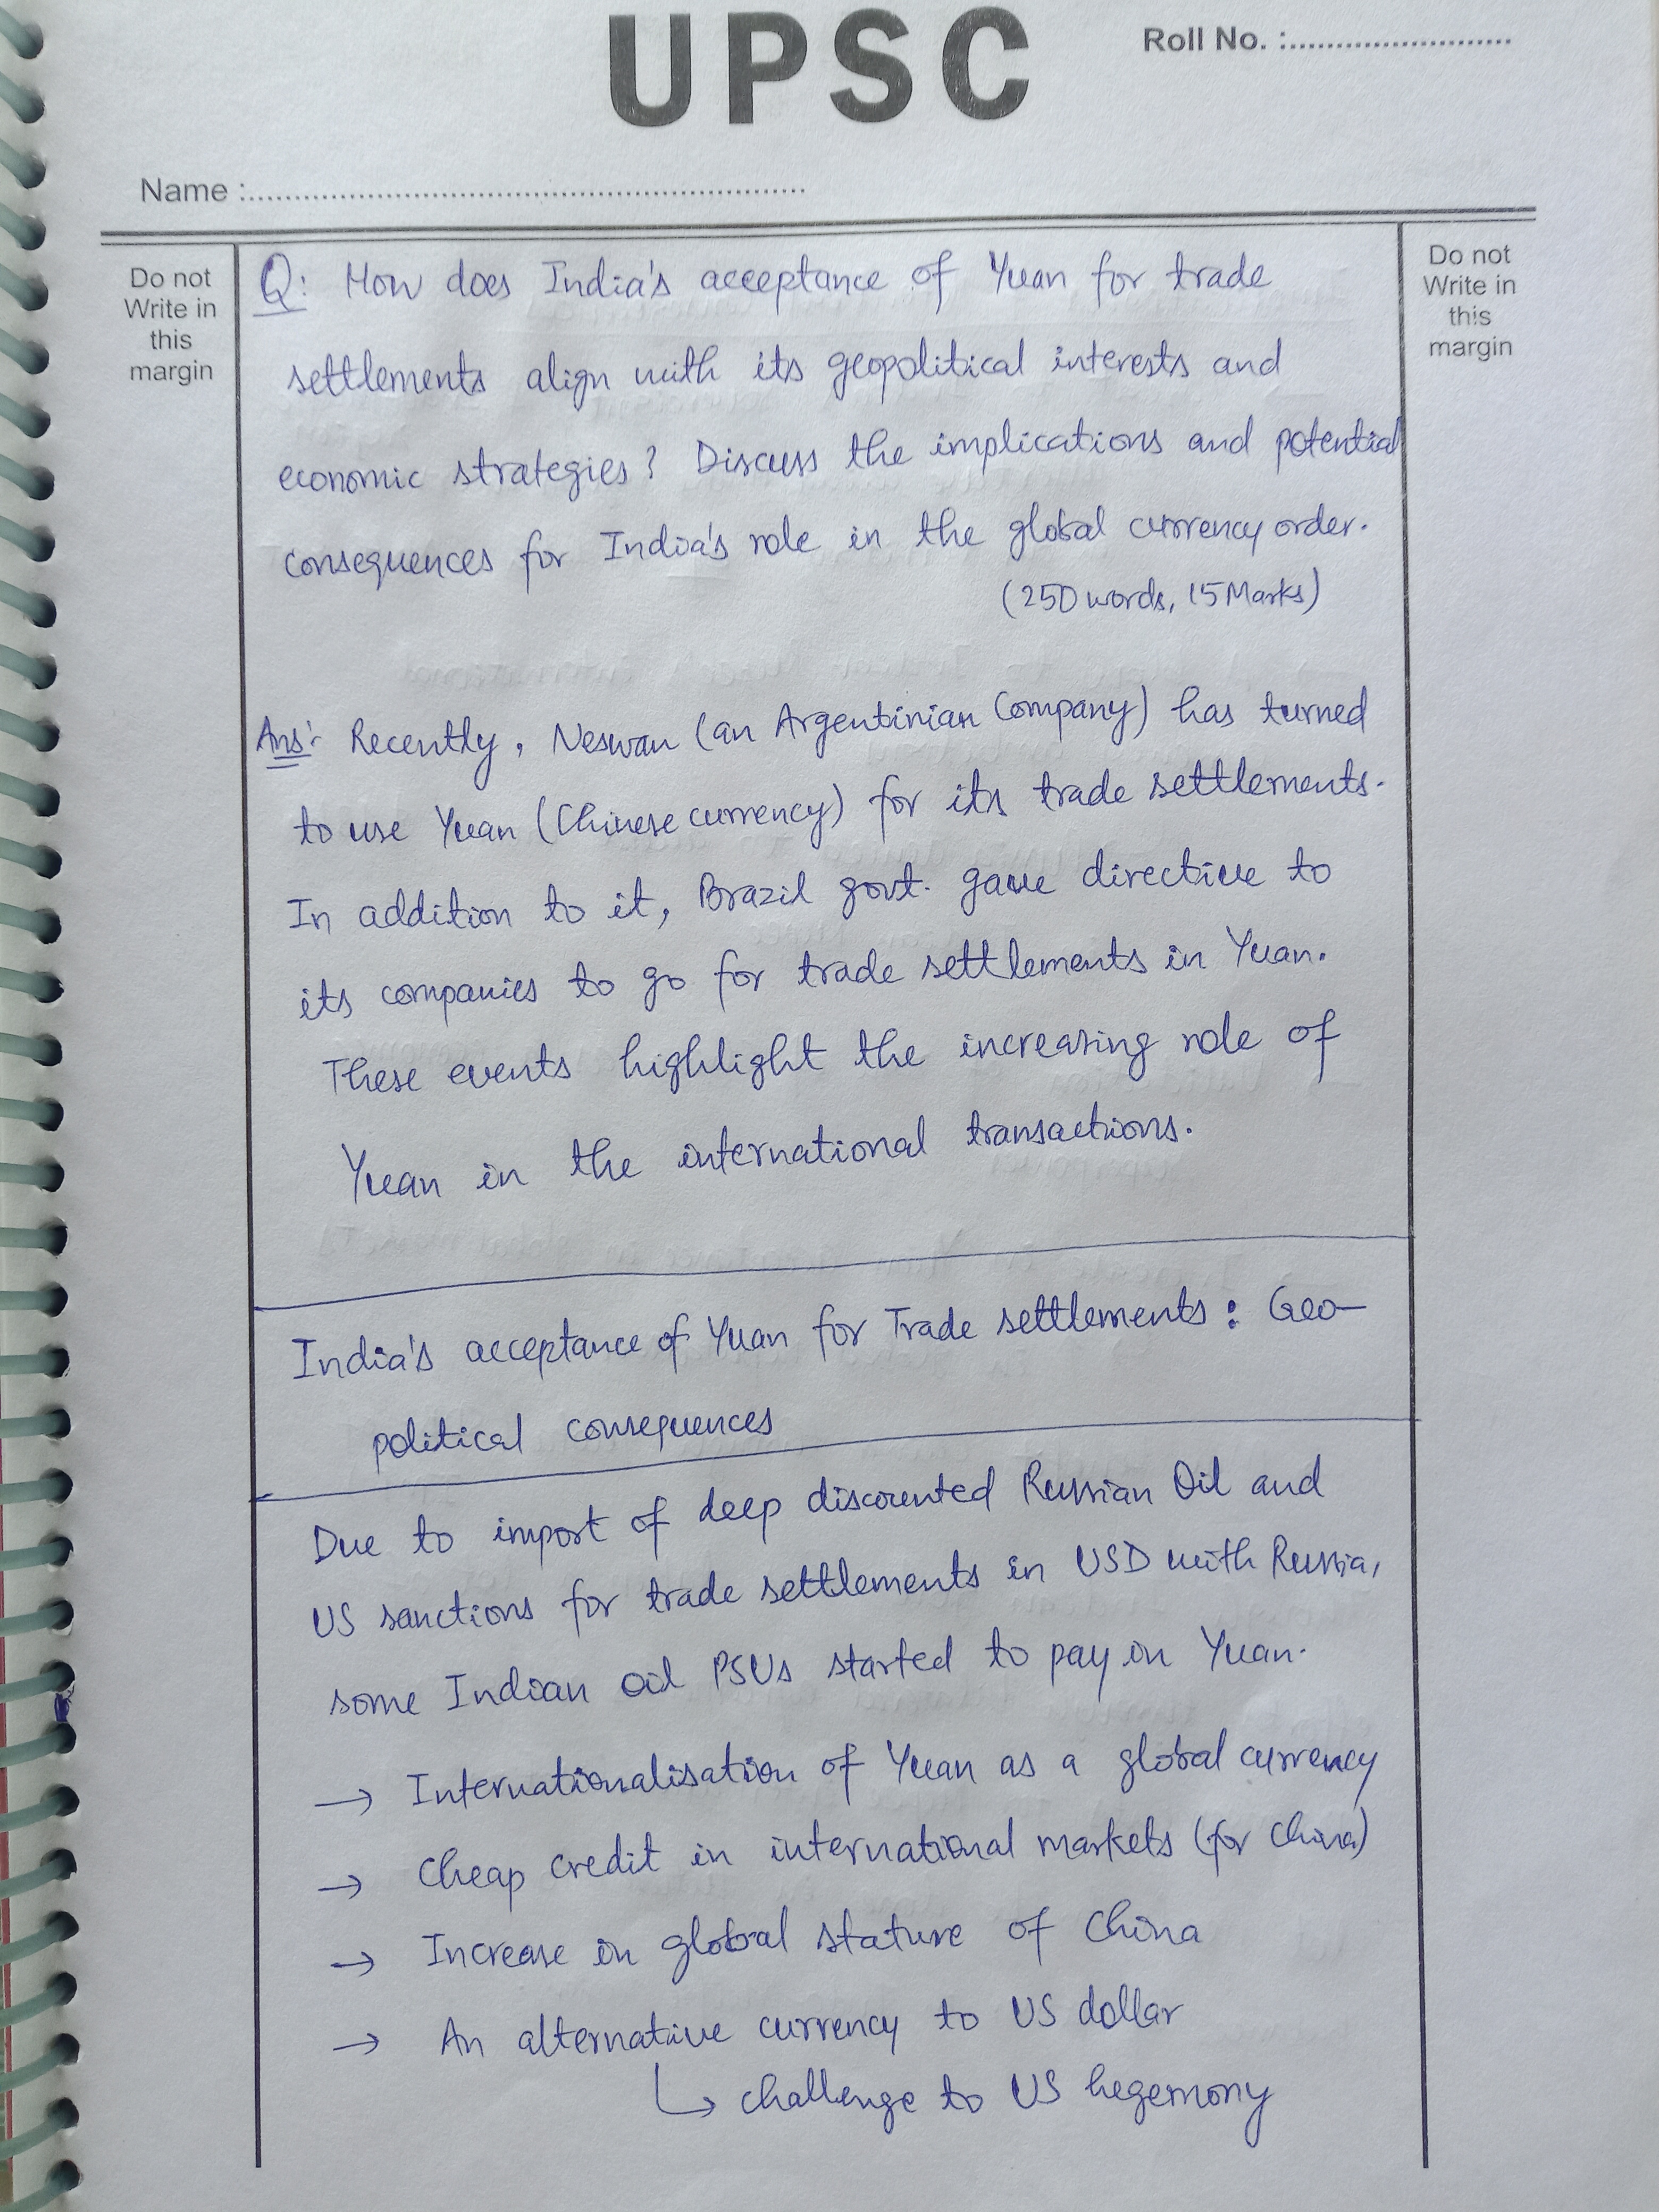 UPSC
Roll No. :..........................
Name :..............................................................
Do not
Write in
this
margin
Do not
Write in
this
margin
Q: How does India's acceptance of Yuan for trade
settlements align with its geopolitical interests and
economic strategies? Discuss the implications and potential
consequences for India's role in the global currency order.
(250 words, 15 Marks)
Ans: Recently, Neswan (an Argentinian Company) has turned
to use Yuan (Chinese currency) for its trade settlements.
In addition to it, Brazil govt. gave directive to
its companies to go for trade settlements in Yuan.
These events highlight the increasing role of
Yuan in the international transactions.
India's acceptance of Yuan for Trade settlements : Geo-
political consequences
Due to import of deep discounted Russian Oil and
US sanctions for trade settlements in USD with Russia,
some Indian oil PSUs started to pay in Yuan.
→ Internationalisation of Yuan as a global currency
→ Cheap credit in international markets (for China)
→ Increase in global stature of China
→ An alternative currency to US dollar
↳ challenge to US hegemony